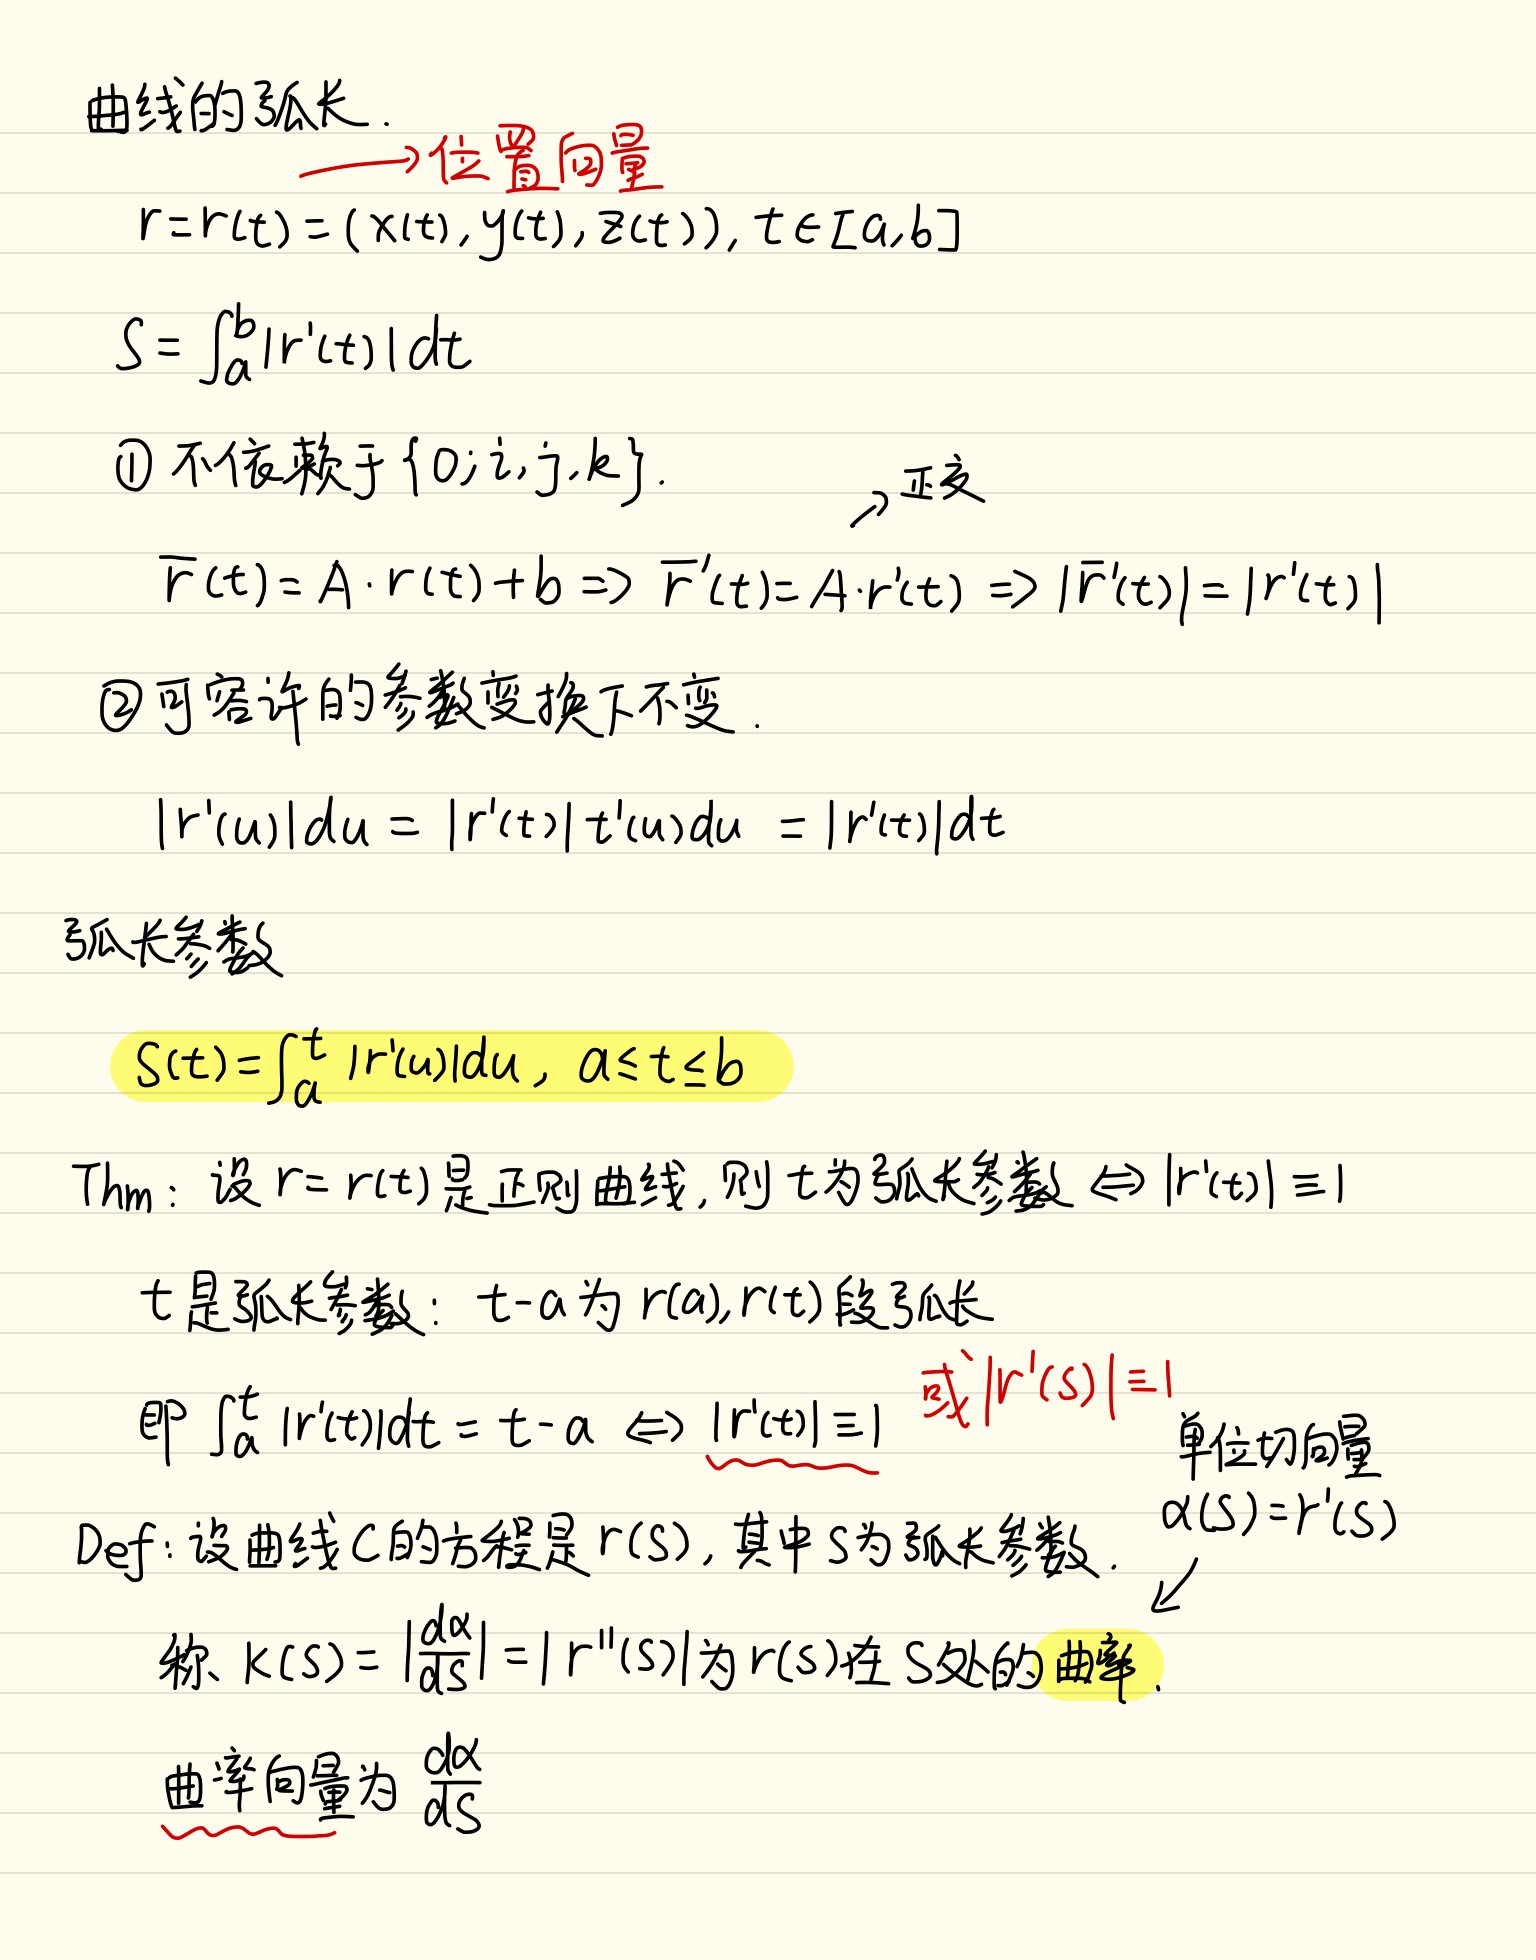 曲线的弧长.
→位置向量
r=r(t)=(x(t),y(t),z(t)),t∈[a,b]
S=∫_a^b|r'(t)|dt
① 不依赖于{O;i,j,k}.
↗正交
r̅(t)=A·r(t)+b⇒r̅'(t)=A·r'(t)⇒|r̅'(t)|=|r'(t)|
② 可容许的参数变换下不变.
|r'(u)|du=|r'(t)|t'(u)du=|r'(t)|dt
弧长参数
S(t)=∫_a^t|r'(u)|du, a≤t≤b
Thm: 设r=r(t)是正则曲线,则t为弧长参数⇔|r'(t)|≡1
t是弧长参数: t-a为r(a),r(t)段弧长
即∫_a^t|r'(t)|dt=t-a⇔|r'(t)|≡1
或|r'(s)|≡1
单位切向量
α(s)=r'(s)
Def:设曲线C的方程是r(s),其中s为弧长参数.
称κ(s)=|dα/ds|=|r''(s)|为r(s)在s处的曲率.
曲率向量为 dα/ds